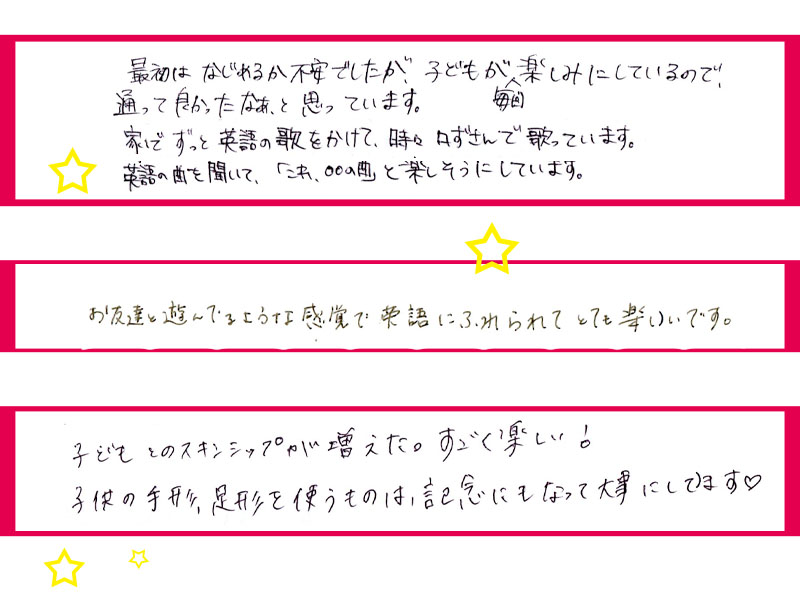 最初は なじめるか不安でしたが、子どもが毎回楽しみにしているので、
通って良かったなあ、と思っています。
家で ずっと英語の歌をかけて、時々口ずさんで歌っています。
英語の曲を聞いて、「これ、○○の曲」と楽しそうにしています。
お友達と遊んでるような感覚で英語にふれられてとても楽しいです。
子どもとのスキンシップが増えた。すごく楽しい!
子供の手形、足形を使うものは、記念にもなって大事にしてます♡